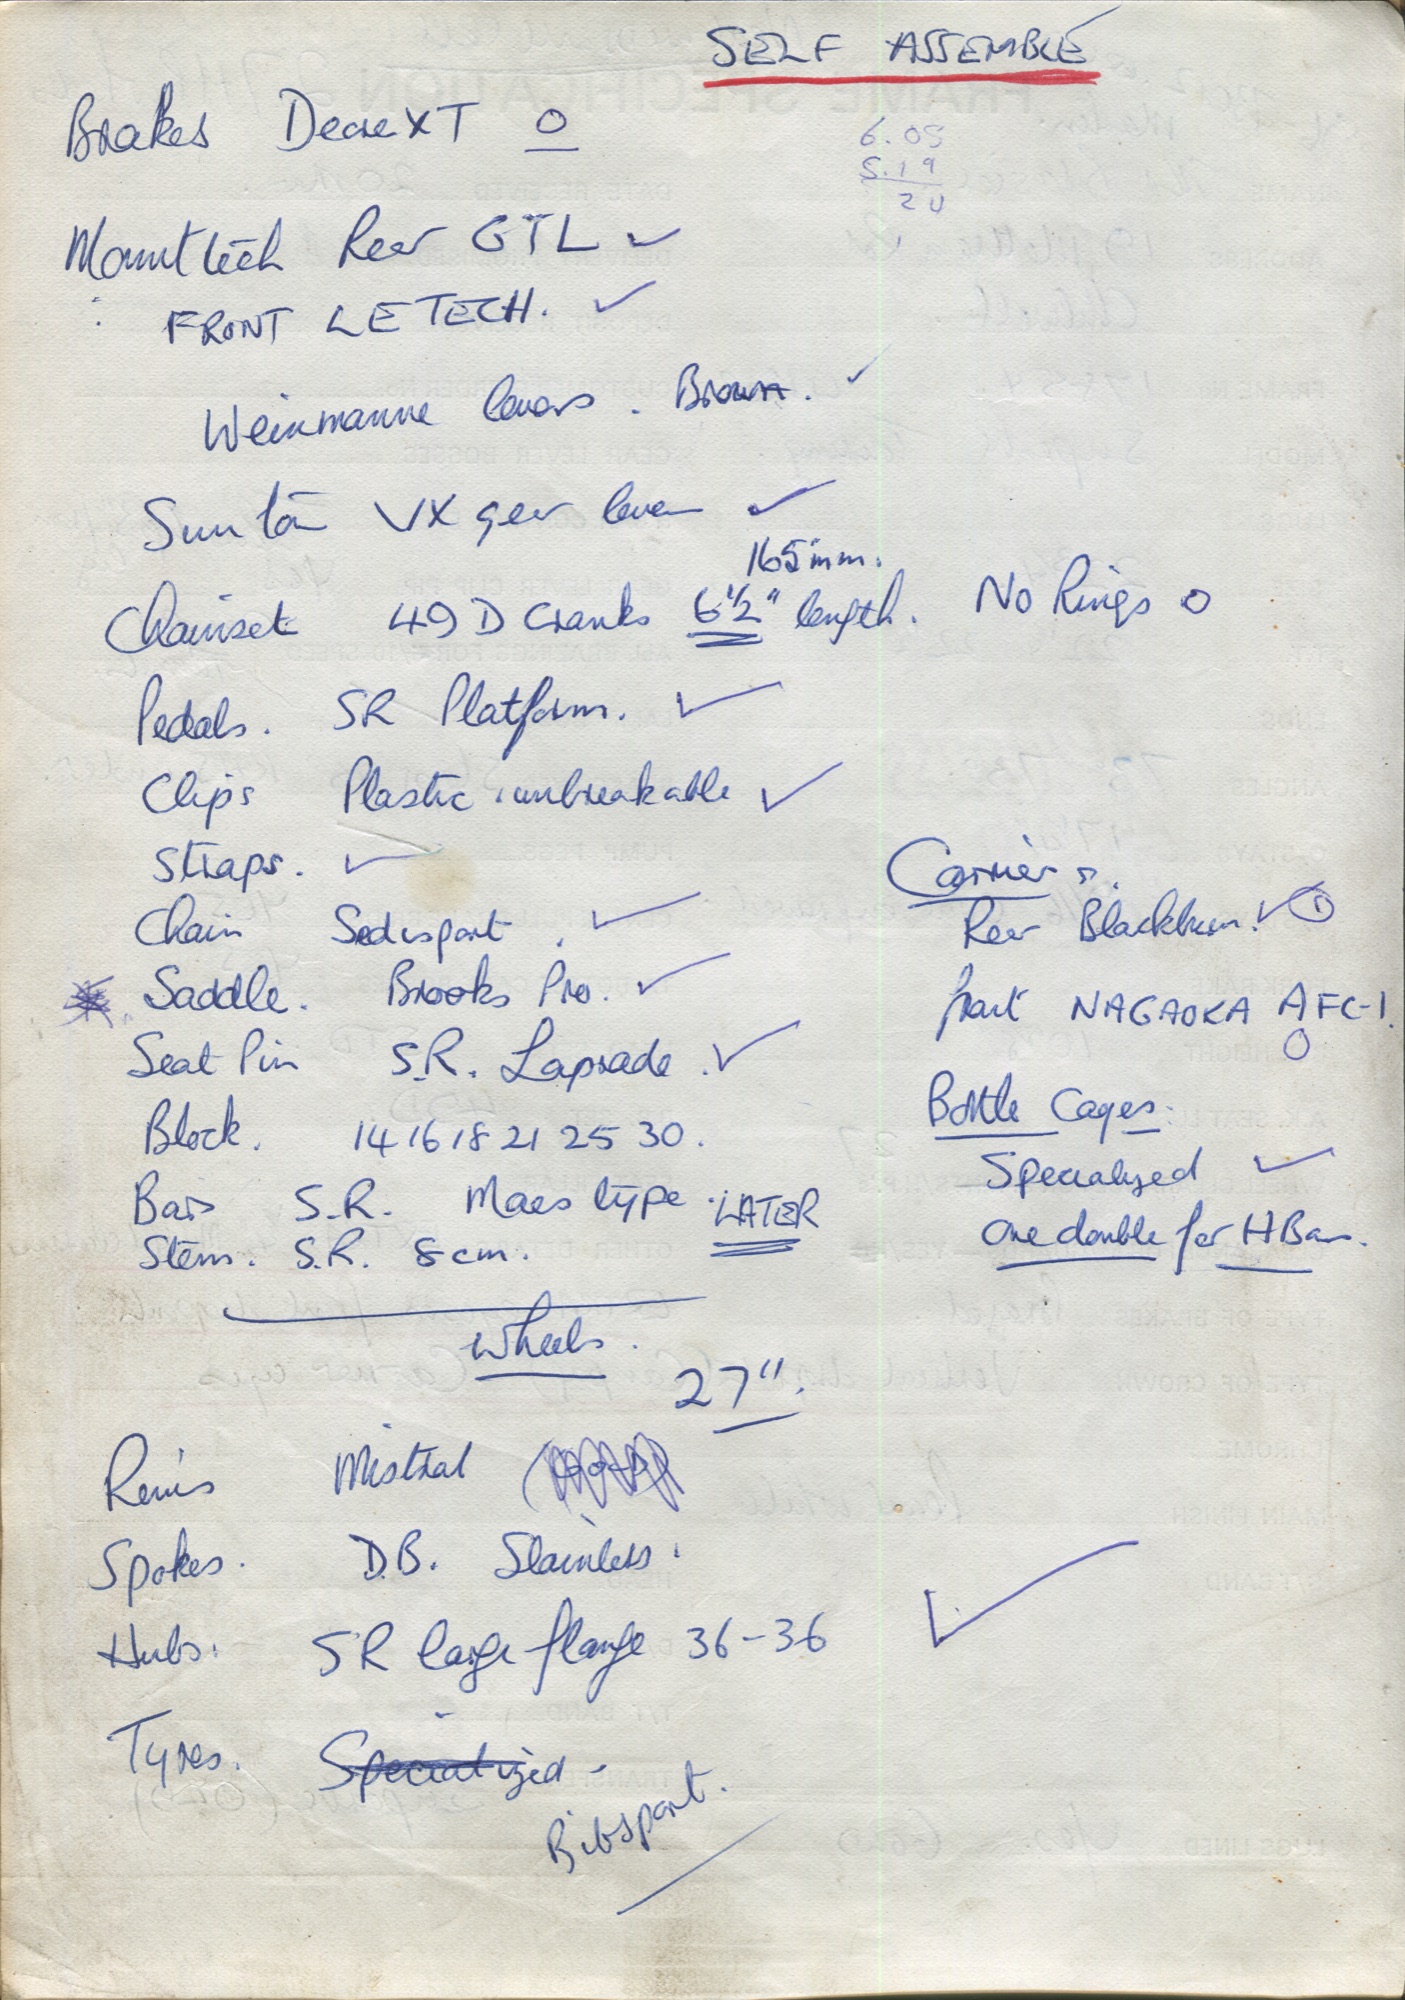 SELF ASSEMBLE
Brakes Deore XT O
6.05
5.19
20
Mounttech Rear GTL ✓
: FRONT LE TECH. ✓
Weinmanne levers. Brown. ✓
Sun tōn VX gear lever ✓
165mm.
Chainset 49D Cranks 6½" length. No Rings O
Pedals. SR Platform. ✓
Clips Plastic unbreakable ✓
Straps. ✓
Chain Sedisport. ✓
* Saddle. Brooks Pro. ✓
Seat Pin S.R. Laprade. ✓
Block. 14 16 18 21 25 30.
Bars S.R. Maes type. LATER
Stem. S.R. 8cm.
Carriers.
Rear Blackburn. ✓ ①
front NAGAOKA AFC-1.
O
Bottle Cages:
Specialized ✓
One double for HBars.
Wheels.
27".
Rims Mistral
Spokes. D.B. Stainless.
Hubs. SR large flange 36-36 ✓
Tyres. Specialized -
Bibsport.